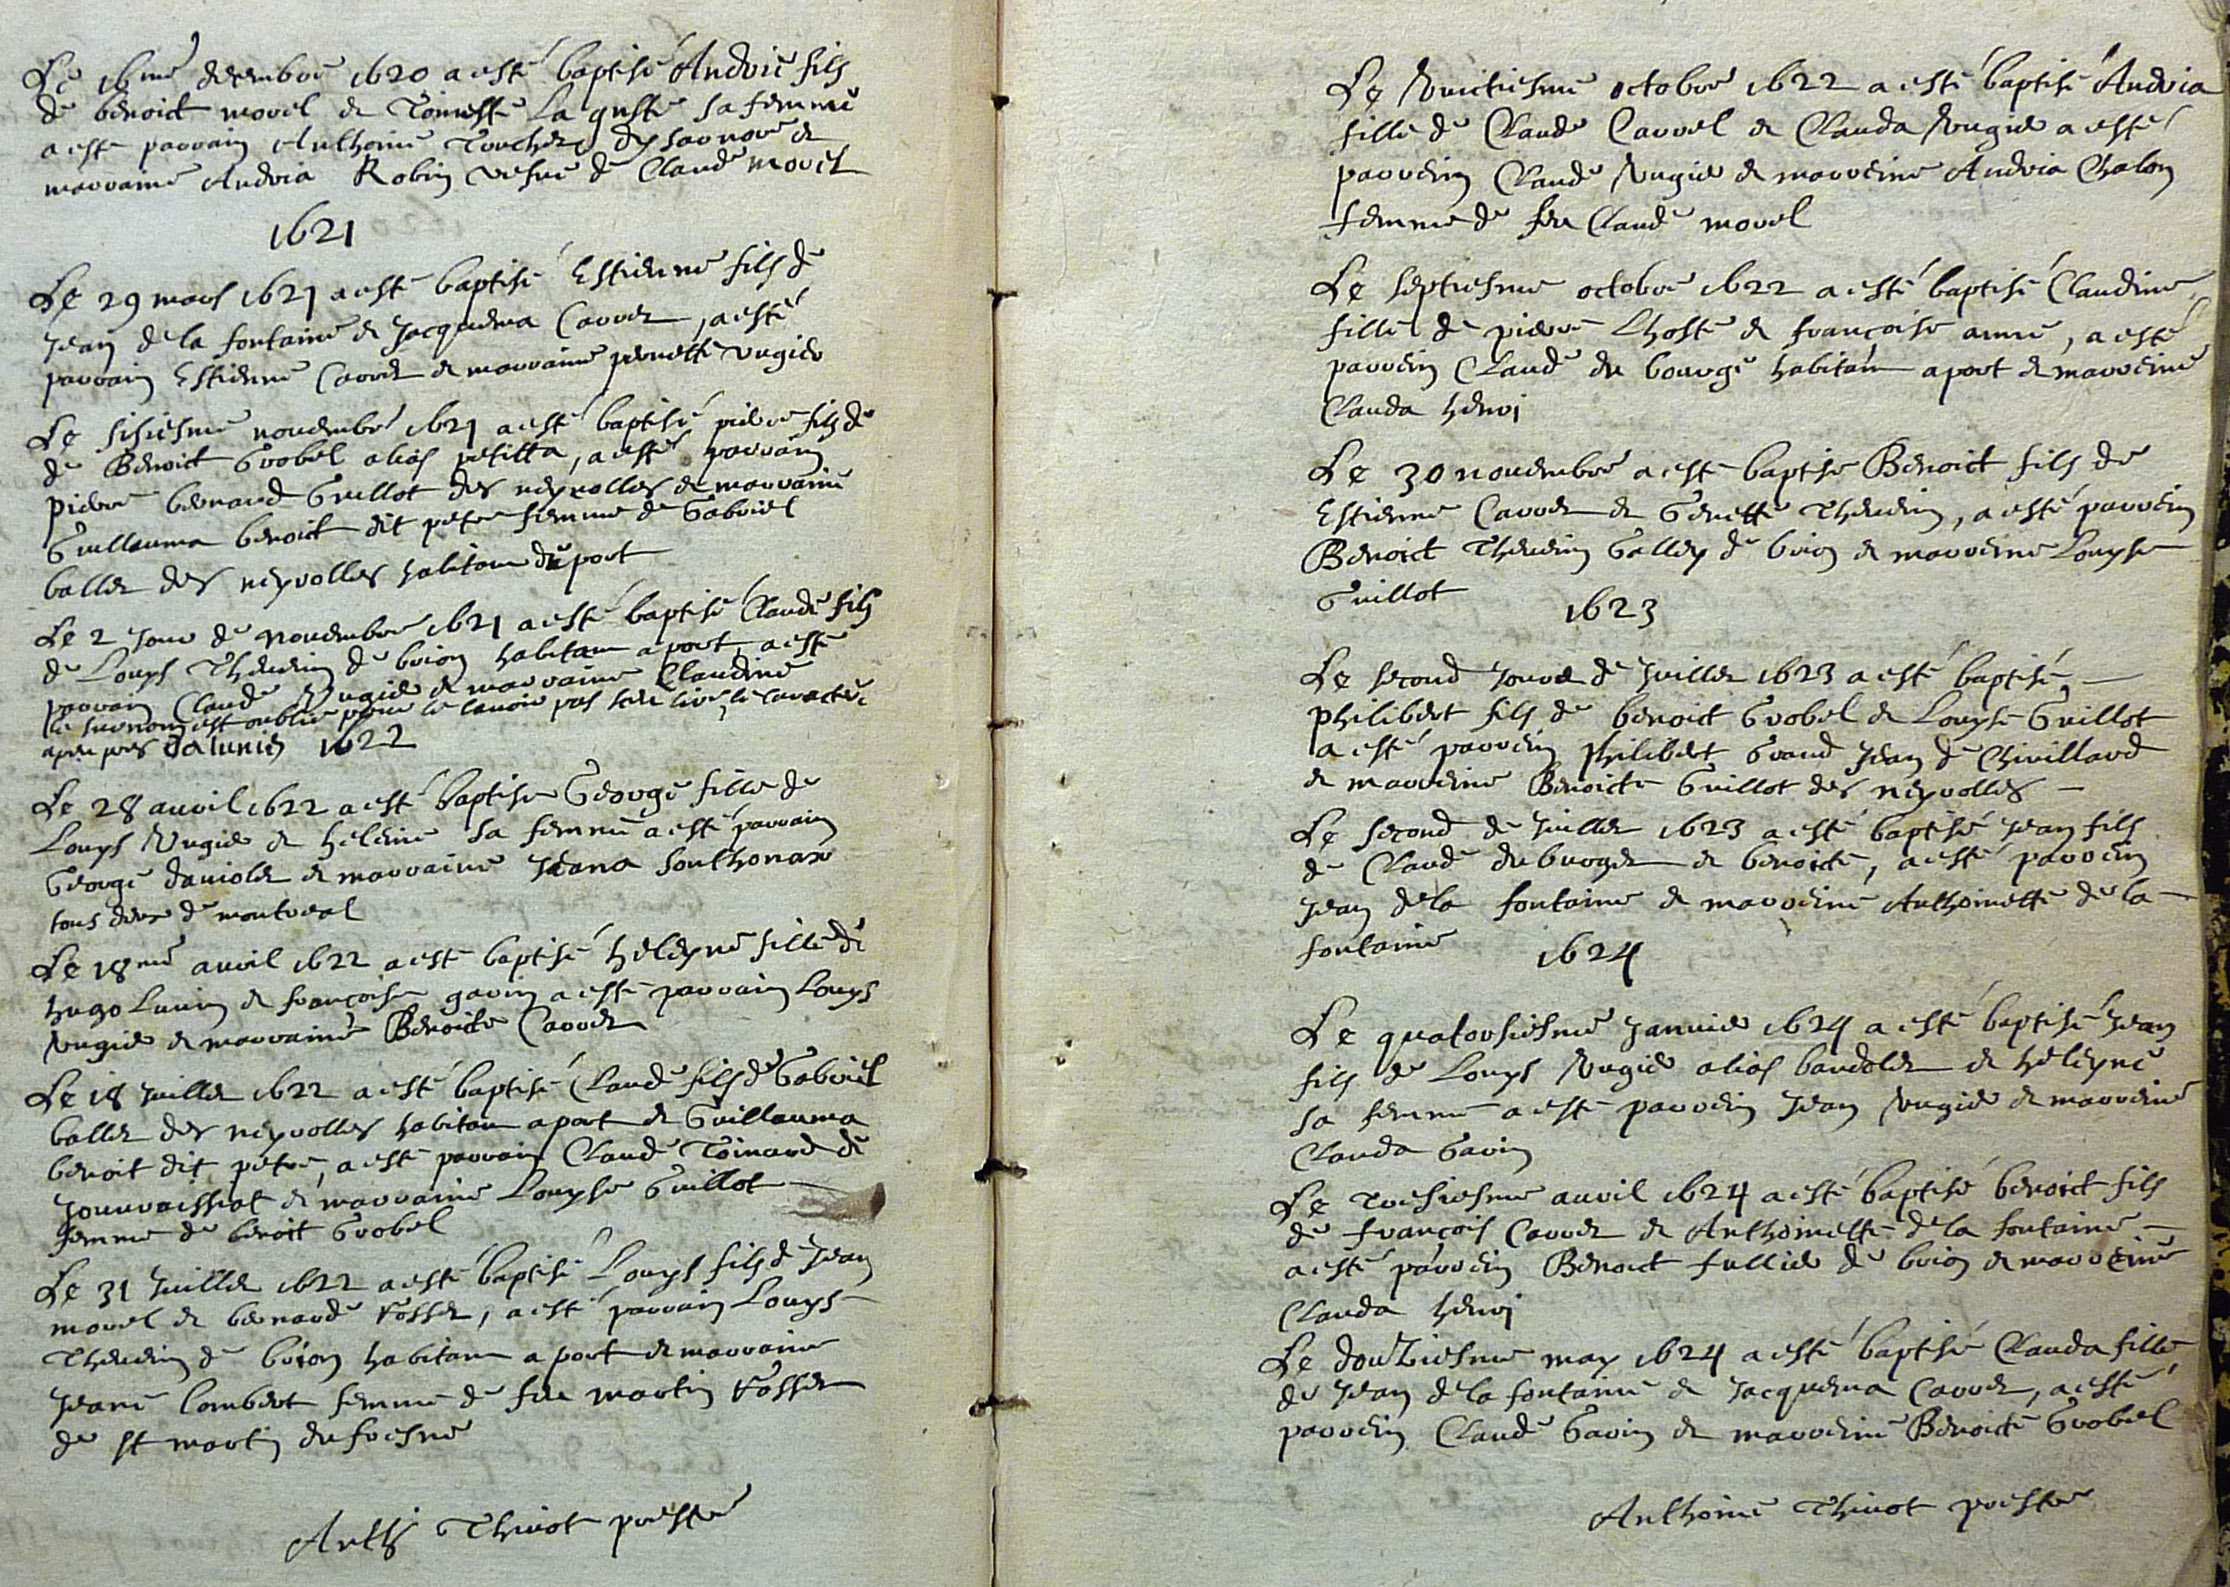 Le 16me decembre 1620 a esté baptisé Andrie fils
de benoict morel et Toinesse la guste sa femme
a esté parrain Anthoine Touchery et
marraine Andria Robin vefve de Claude morel
1621
Le 29 mars 1621 a esté baptisé Estienne fils de
Jean de la fontaine et Jacquema Carret, a esté
parrain Estienne Carret et marraine pernette rugier
Le sisiesme novembre 1621 a esté baptisé pierre fils de
de Benoict Grobel alias petitta, a esté parrain
pierre bernard Guillot des neyrolles et marraine
Guillauma benoict dit petre femme de Gabriel
ballet des neyrolles habitant du port
Le 2 jour de novembre 1621 a esté baptisé Claude fils
de Louys Thevenin de brion habitant a port, a esté
parrain Claude Rugier et marraine Claudine
le surnom est oublié pour le lavoir pas le caractere
1622
Le 28 avril 1622 a esté baptisé George fille de
Louys Rugier et heleine sa femme a esté parrain
George daviolet et marraine Jeana Southonax
tous deux de montreal
Le 18me avril 1622 a esté baptisé heleyne fille de
hugo Luvin et françoise gavin a esté parrain Louys
Rugier et marraine Benoicte Carret
Le 18 juillet 1622 a esté baptisé Claude fils de Gabriel
ballet des neyrolles habitant a port et Guillauma
benoit dit petre, a esté parrain Claude Toinard de
et marraine Louyse Guillot
femme de benoit Grobel
Le 31 juillet 1622 a esté baptisé Louys fils de Jean
morel et bernarde Rosset, a esté parrain Louys
Thevenin de brion habitant a port et marraine
Jeane lombert femme de feu martin Rosset
de st martin du fresne
Anth Thivot prestre
Le huictiesme octobre 1622 a esté baptisé Andria
fille de Claude Carrel et Clauda Rugier a esté
parrein Claude Rugier et marreine Andria Chalon
femme de feu Claude morel
Le septiesme octobre 1622 a esté baptisé Claudine
fille de pierre Lhoste et françoise anne, a esté
parrein Claude du bourge habitant a port et marreine
Clauda henri
Le 30 novembre a esté baptisé Benoict fils de
Estienne Carret et Genette Thevenin, a esté parrein
Benoict Thevenin Galley de brion et marreine Louyse
Guillot
1623
Le second jour de juillet 1623 a esté baptisé
philibert fils de benoict Grobel et Louyse Guillot
a esté parrein philibert Grand Jean de Chivillard
et marreine Benoicte Guillot des neyrolles
Le second de juillet 1623 a esté baptisé Jean fils
de Claude du burget et benoicte, a esté parrein
Jean de la fontaine et marreine Anthoinette de la
fontaine
1624
Le quatorsiesme janvier 1624 a esté baptisé Jean
fils de Louys Rugier alias baudolet et heleyne
sa femme a esté parrein Jean Rugier et marreine
Clauda Gavin
Le troisiesme avril 1624 a esté baptisé benoict fils
de françois Carret et Anthoinette de la fontaine
a esté parrein Benoict fullier de brion et marreine
Clauda henri
Le douziesme may 1624 a esté baptisé Clauda fille
de Jean de la fontaine et Jacquema Carret, a esté
parrein Claude Gavin et marreine Benoicte Grobel
Anthoine Thivot prestre